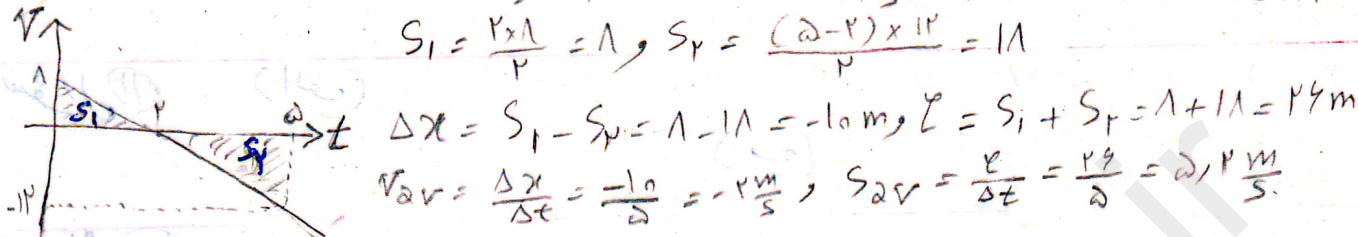 V
۸
S₁
۲
۵
t
S₂
-۱۲
S₁ = ۲×۸/۲ = ۸ , S₂ = (۵-۲)×۱۲/۲ = ۱۸
Δx = S₁ - S₂ = ۸ - ۱۸ = -۱۰ m , ℓ = S₁ + S₂ = ۸ + ۱۸ = ۲۶ m
Vav = Δx/Δt = -۱۰/۵ = -۲ m/s , Sav = ℓ/Δt = ۲۶/۵ = ۵,۲ m/s